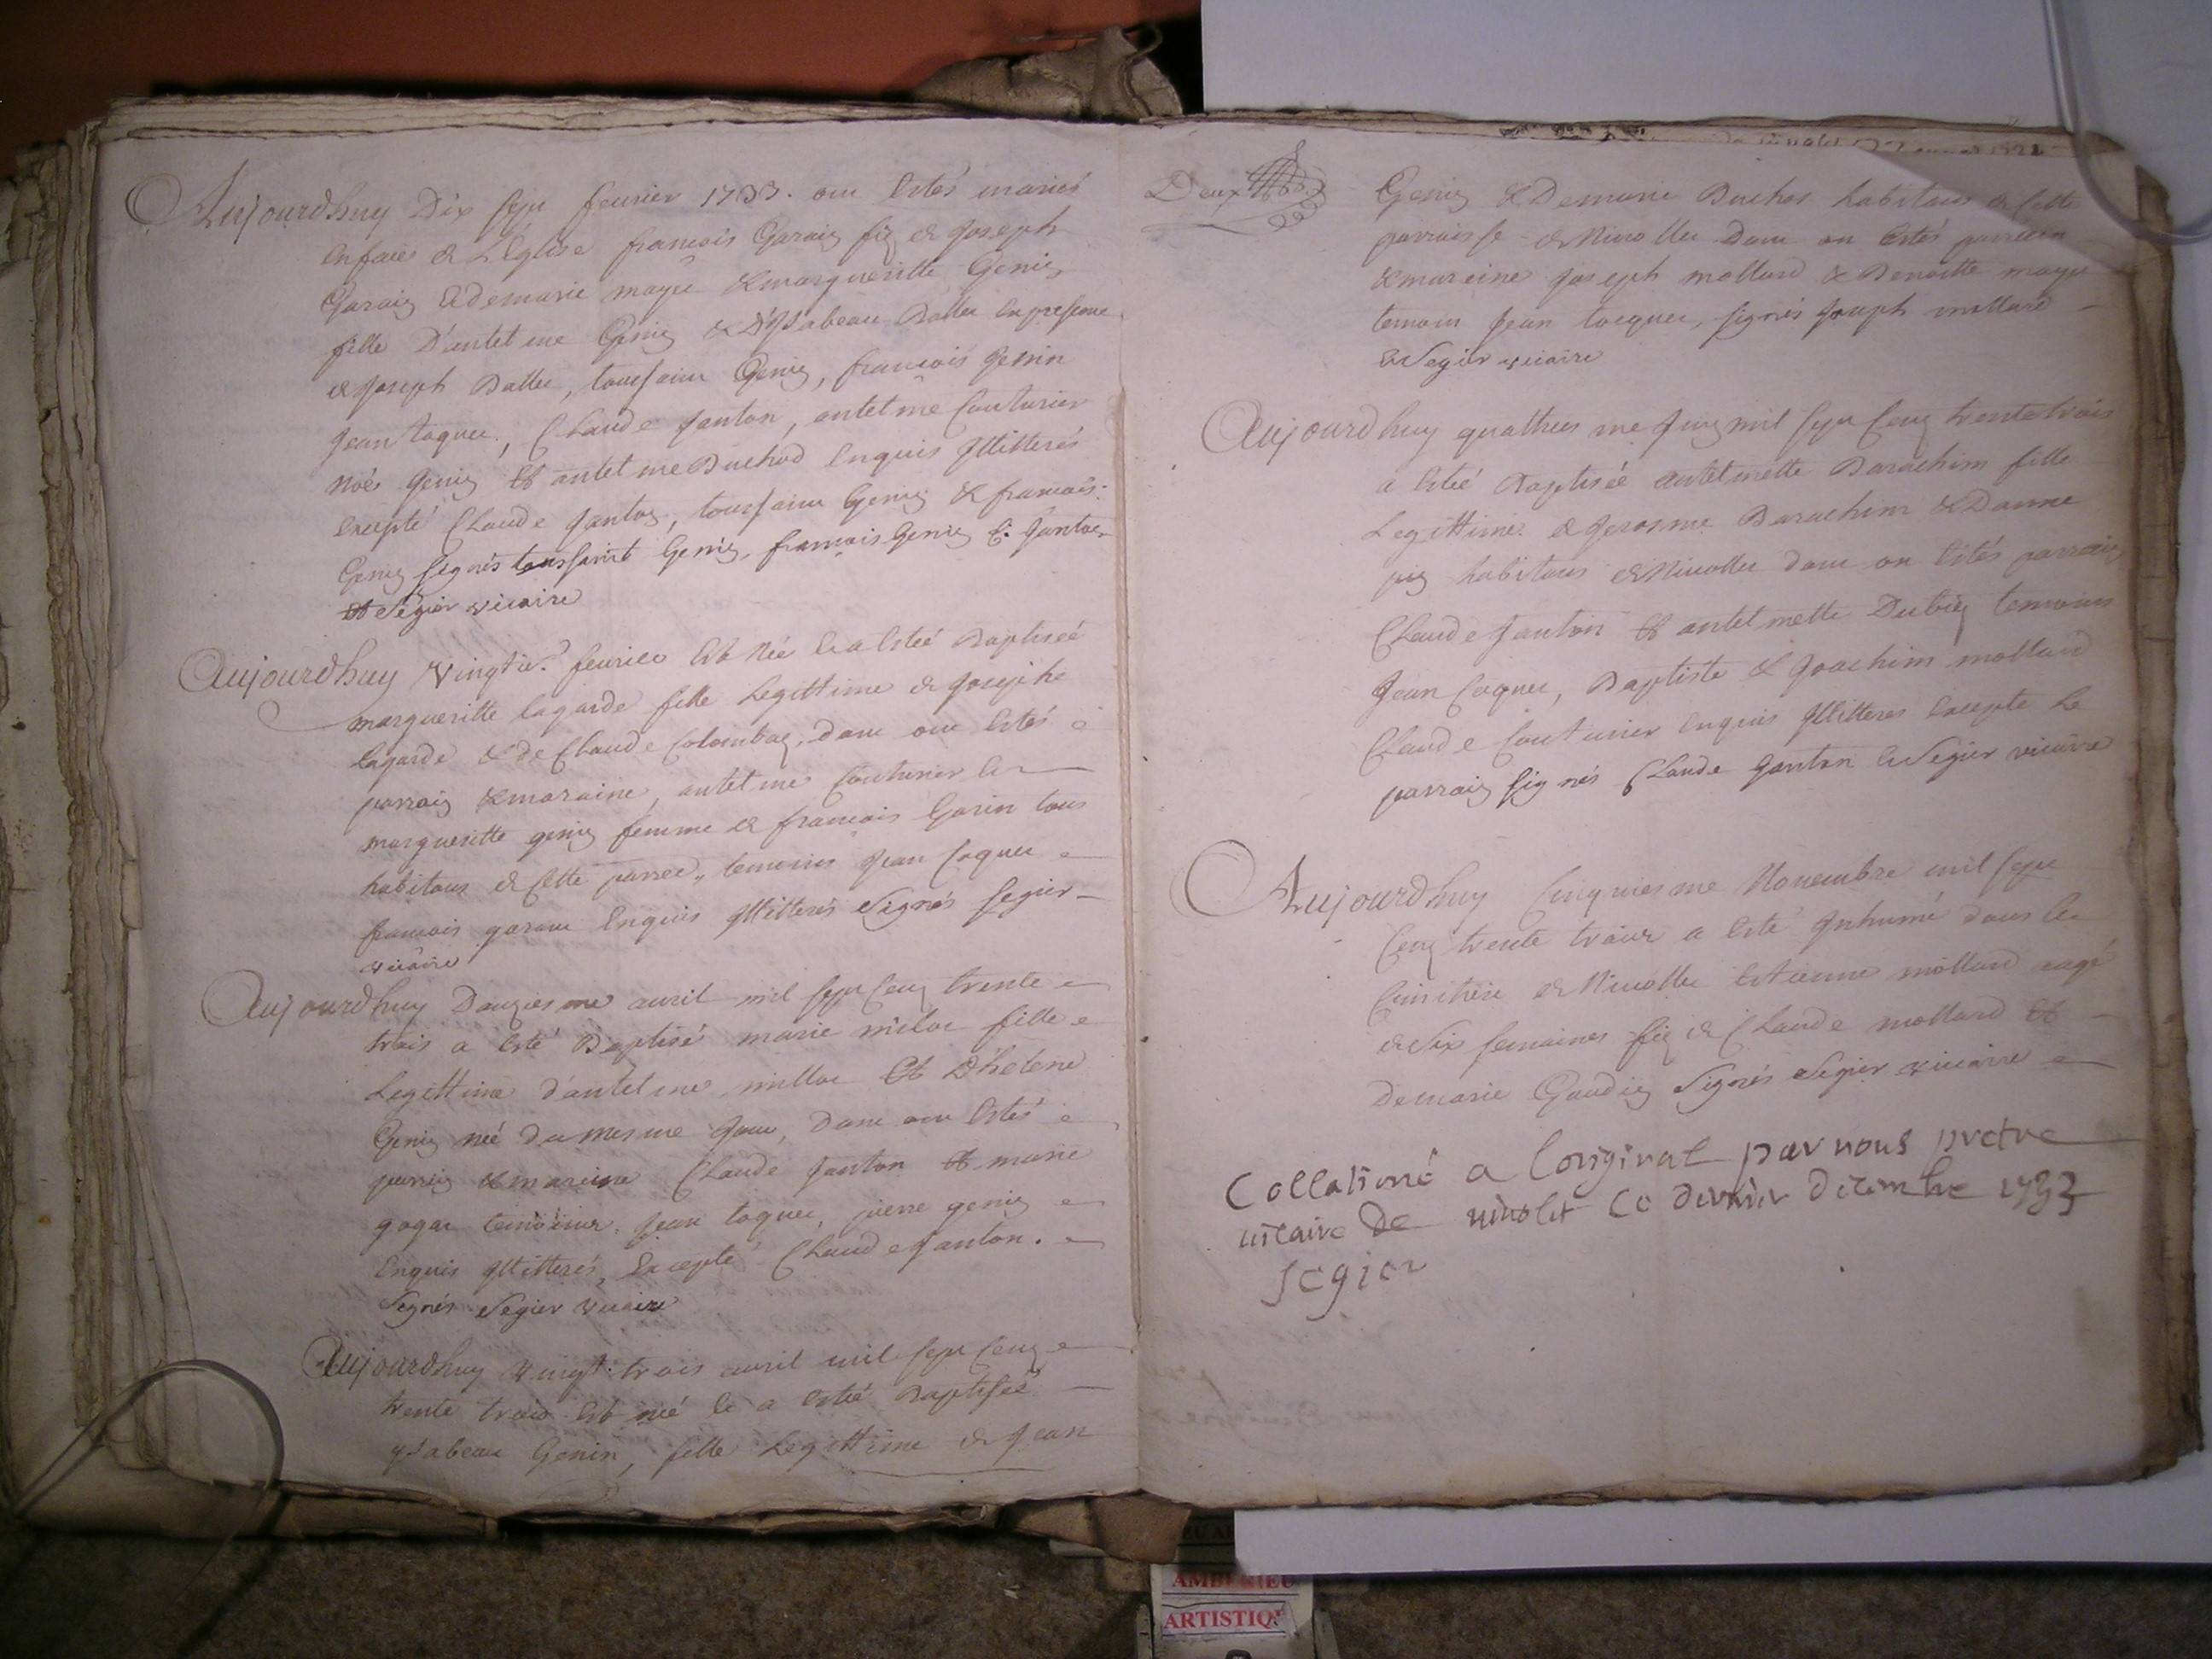 Aujourdhuy Dix sept feurier 1733. ont Estés mariés
Enface de L'Eglise francois Garaig fiz de Joseph
Garaig & demarie mayu & marguerittte Genig
fille D'antelme Genig & D'ysabeau Ballu En presence
de Joseph Ballu, toussaint Genig, francois Genin
Jean toquet, Claude Janton, antelme Couturier
Noé Genig Et antelme Duchod Enquis Illitterés
Excepté Claude Janton, toussaint Genig & francois
Genig signés toussaint Genig, francois Genig C. Janton
Et Segier vicaire
Aujourdhuy Vingtie. feurier Est Née & a Estée Baptiseé
margueritte lagarde fille Legittime de Joseph
lagarde & de Claude Colombag, dont ont Estés
parraig & maraine, antelme Couturier &
margueritte genig femme de francois Garin tous
habitans de cette parroe., temoins Jean Coquet
francois garaut Enquis Illitterés Signés Segier
vicaire
Aujourdhuy Douziesme auril mil sept Cent trente
trois a Esté Baptisé marie milloc fille
Legittime d'antelme milloc Et D'helene
Genig neé du mesme Jour, Dont ont Estés
parraig & maraine Claude Janton Et marie
gogat temoins, Jean toquet, pierre genig
Enquis Illitterés, Excepté Claude Janton.
Signés Segier vicaire
Aujourdhuy vingt trois auril mil sept Cent
trente trois Est neé & a Estée Baptiseé
ysabeau Genin, fille Legittime de Jean
Deux
Genig & Demarie Duchos habitans de cette
parroisse de Niuollet Dont on Estés parrein
& mareine Joseph mollard & Benoitte mayu
temoin Jean tocquet, signés Joseph mollard
& Segier vicaire
Aujourdhuy quathriesme Juig mil sept Cent trente trois
a Estée Baptiseé antelmette Barachim fille
Legittime de Jerosme Barachim & Danne
pig habitans de Niuollet dont on Estés parraig
Claude Janton Et antelmette Dubig temoins
Jean Coquet, Baptiste & Joachim mollard
Claude Couturier Enquis Illitteres Excepte Le
parraig signés Claude Janton & Segier vicaire
Aujourdhuy Cinquiesme Nouembre mil sept
Cent trente trois a Esté Inhumé dans le
Cimitiere de Niuollet Estienne mollard aagé
de Six semaines fiz de Claude mollard Et
Demarie Gaudig Signés Segier vicaire
Collationé a loriginal par nous pretre
uicaire De niuolet Ce dernier decembre 1733
segier
AMBERIEU
ARTISTIQ